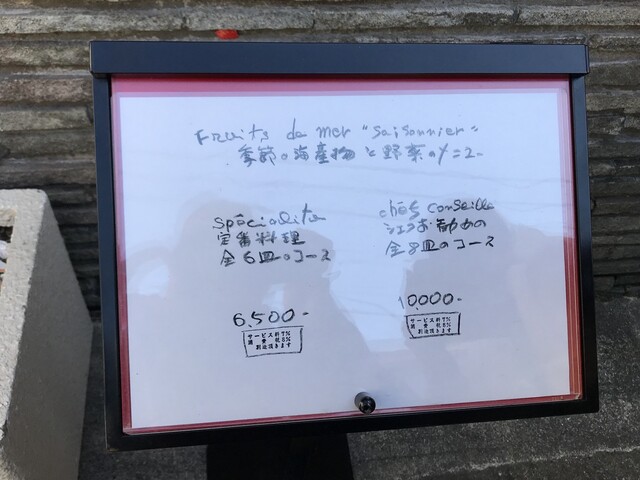 Fruits de mer "saisonnier"
季節の海産物と野菜のメニュー
spécialité
定番料理
全6皿のコース
6,500-
サービス料7%
消費税8%
別途頂きます
chef conseille
シェフお勧めの
全8皿のコース
10,000-
サービス料7%
消費税8%
別途頂きます